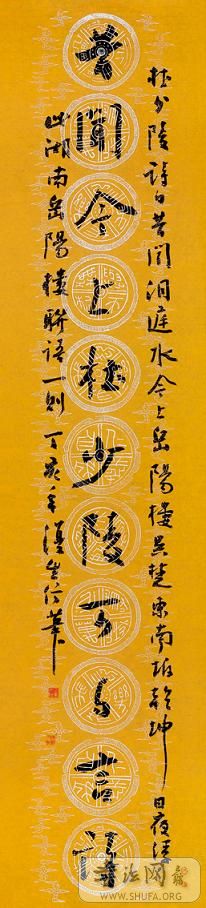 杜少陵詩曰昔聞洞庭水今上岳陽樓吳楚東南坼乾坤日夜浮
昔聞今上杜少陵可与言詩
此湖南岳陽樓聯語一則丁亥年
书法网
WWW.SHUFA.ORG